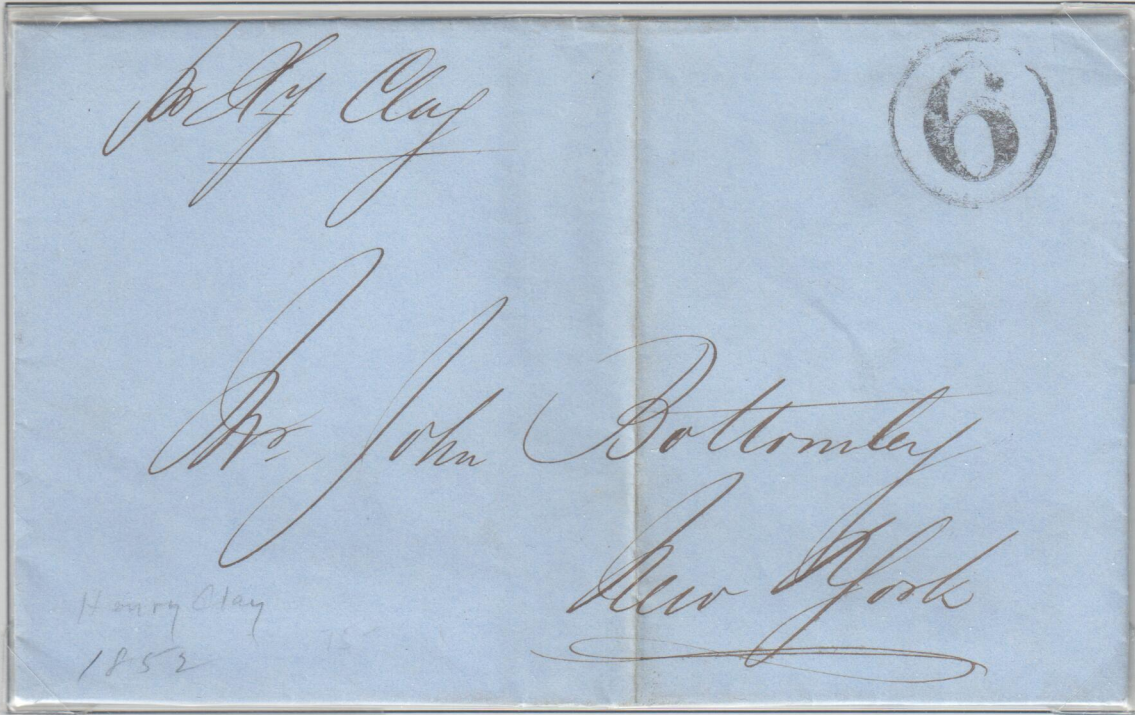 pr Hy Clay
6
Mr. John Bottomley
New York
Henry Clay
1852